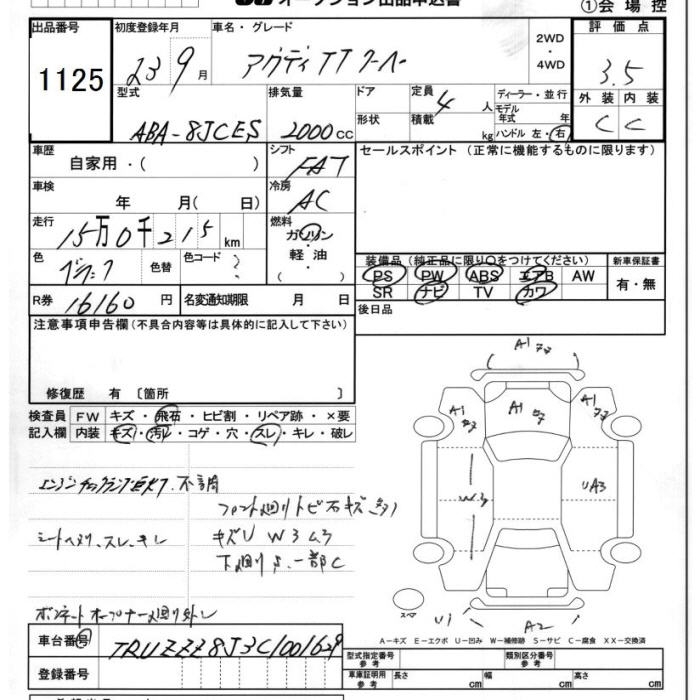 オークション出品申込書
①会場控
出品番号 1125
初度登録年月 23 9月
車名・グレード アウディTTクーペ
2WD・4WD
評価点 3.5
外装 C 内装 C
型式 ABA-8JCES
排気量 2000cc
ドア形状
定員 4人
積載 kg
ディーラー・並行
モデル年式 年
ハンドル 左・右
車歴 自家用・( )
シフト FAT
セールスポイント(正常に機能するものに限ります)
車検 年 月( 日)
冷房 AC
走行 15万0千215km
燃料 ガソリン・軽油
色 ブラック 色替
色コード ?
装備品(純正品に限り○をつけてください)
PS PW ABS エアB AW
SR ナビ TV カワ
新車保証書 有・無
R券 16160円
名変通知期限 月 日
後日品
注意事項申告欄(不具合内容等は具体的に記入して下さい)
修復歴 有 〔箇所 〕
検査員記入欄
FW キズ・飛石・ヒビ割・リペア跡・×要
内装 キズ・汚れ・コゲ・穴・スレ・キレ・破レ
エンジンチェックランプ点灯 不調
フロント廻りトビ石キズ多
シートヘタリ、スレ、キレ
キズU W3 ムラ
下廻りS、一部C
ボンネットオープナー廻り外レ
A1
A1
A1
W3
UA3
スペア
U1
A2
A-キズ E-エクボ U-凹み W-補修跡 S-サビ C-腐食 XX-交換済
車台番号 TRUZZZ8J3C1001629
登録番号
型式指定番号 参考
類別区分番号 参考
車庫証明用 参考 長さ cm 幅 cm 高さ cm